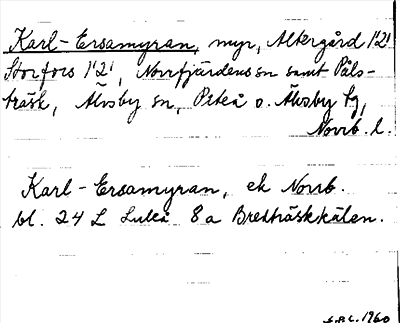 Karl-Ersamyran, myr, Altergård 1'2'
Storfors 1'2', Norrfjärdens sn samt Påls-
träsk, Älvsby sn, Piteå o. Älvsby tg,
Norrb. l.
Karl-Ersamyran, ek Norrb.
bl. 24 L Luleå 8a Bredträskkälen.
1960